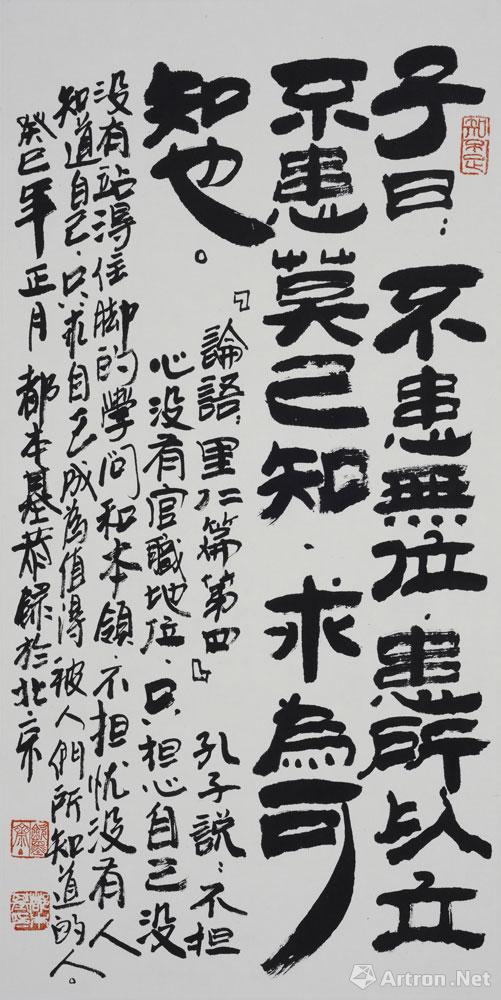 子曰：不患無位，患所以立
不患莫己知，求為可
知也。
『論語：里仁篇第四』孔子說：不担
心没有官職地位，只担心自己没
没有站得住脚的學问和本領，不担忧没有人
知道自己，只求自己成為值得被人們所知道的人。
癸巳年正月都本基恭録於北京
Artron.Net